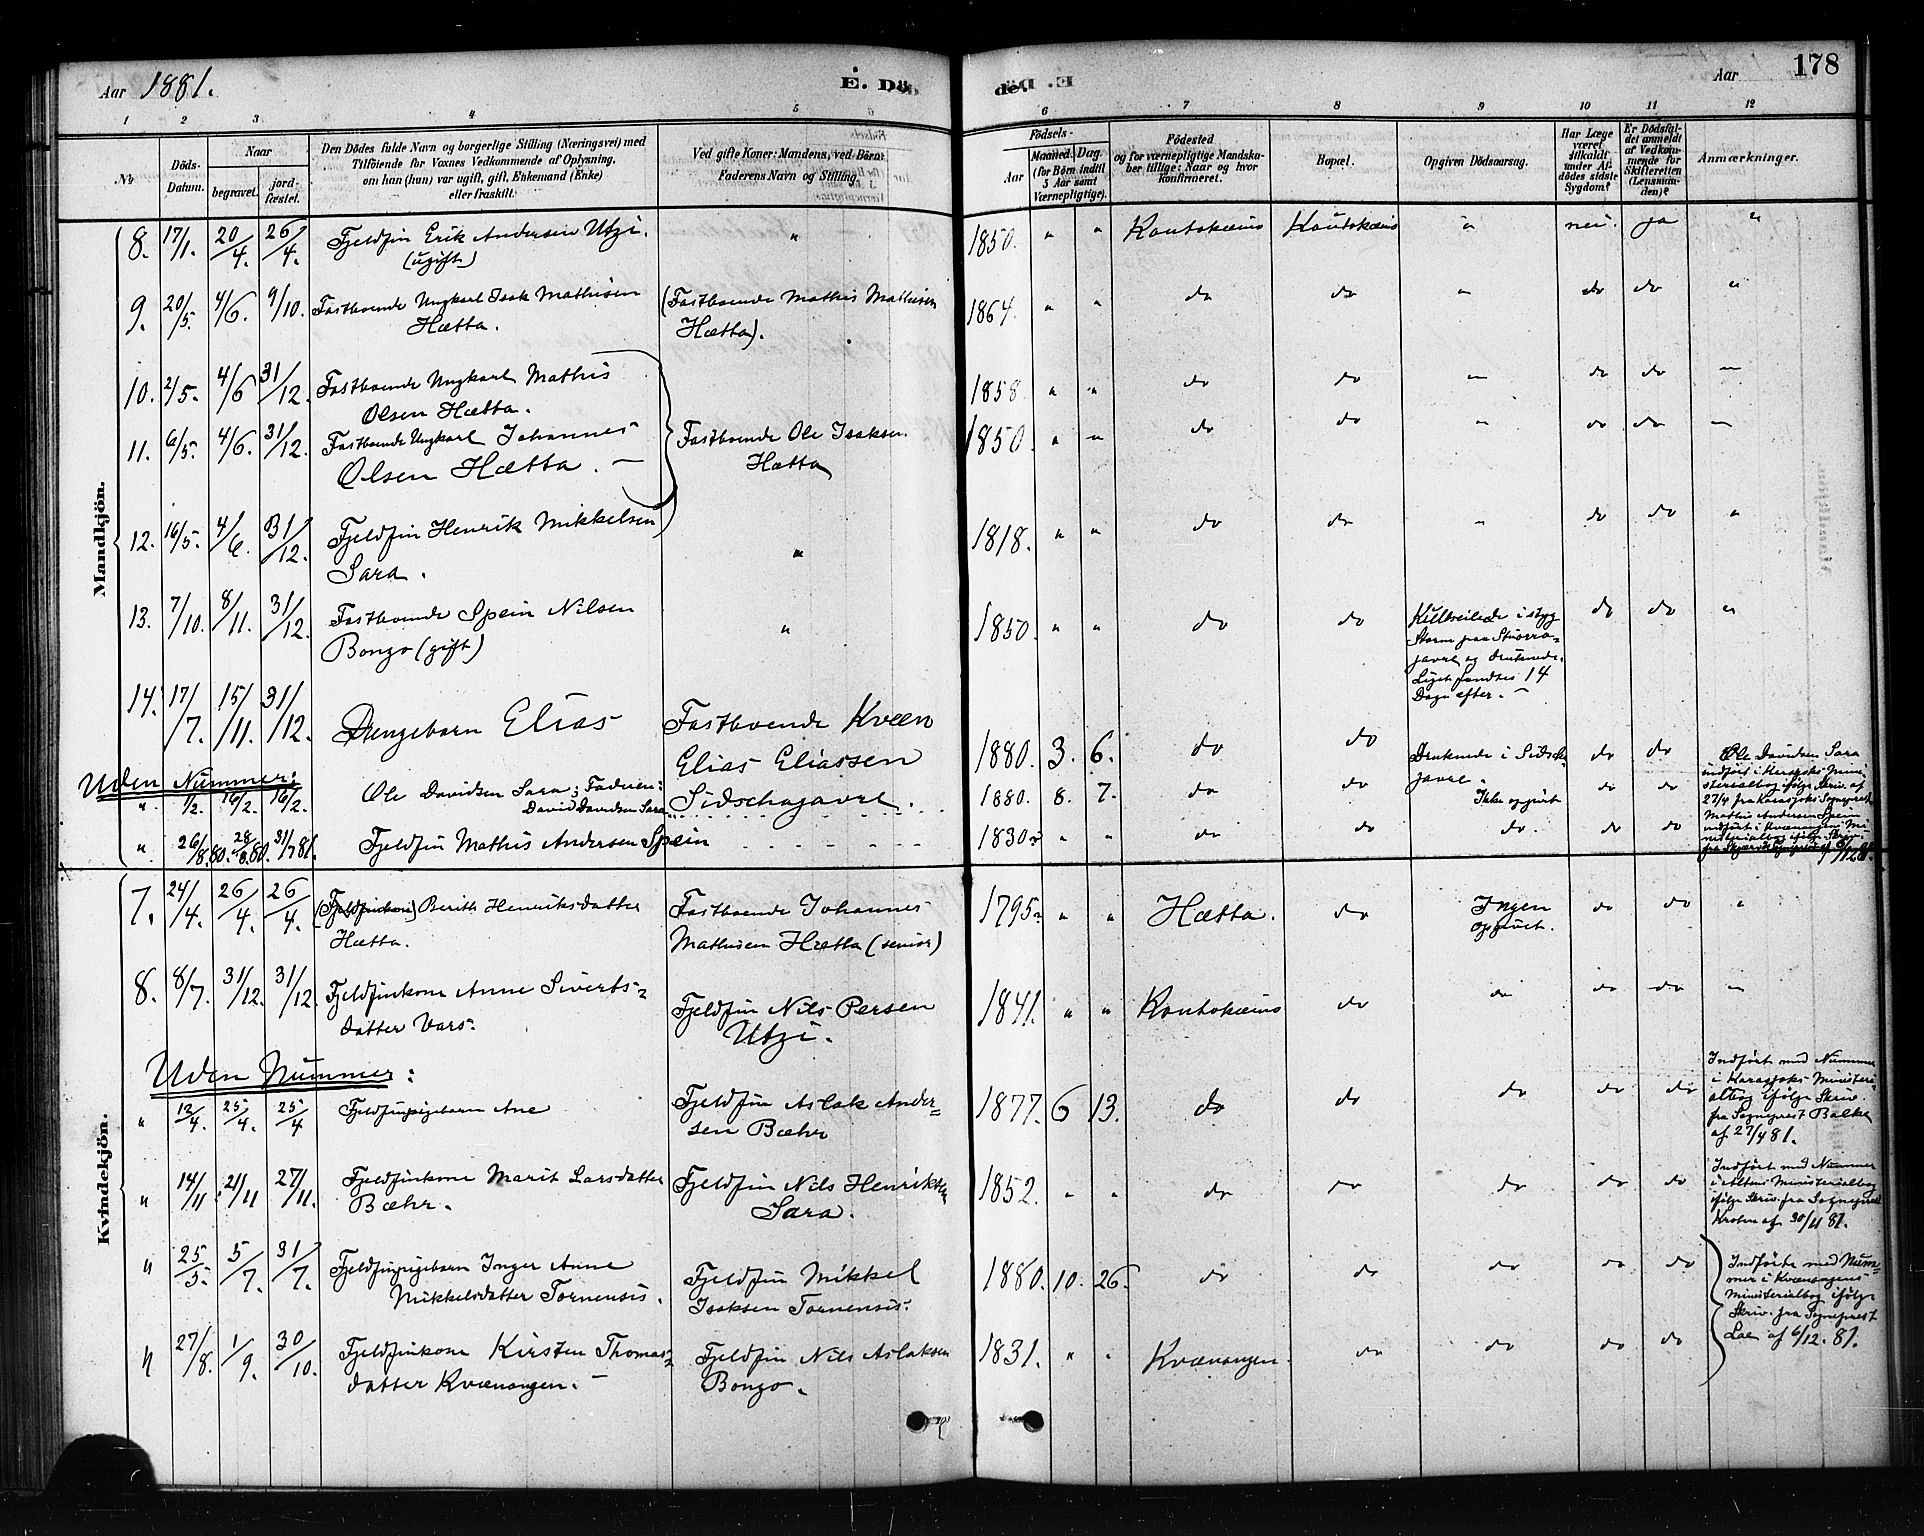 Aar 1881. E. Dö de. Aar 178
1 2 3 4 5 6 7 8 9 10 11 12
No Döds-Datum. Naar begravet. jord-fæstet. Den Dödes fulde Navn og borgerlige Stilling (Næringsvei) med Tilföiende for Voxnes Vedkommende af Oplysning, om han (hun) var ugift, gift, Enkemand (Enke) eller fraskilt. Ved gifte Koner: Mandens, ved Börn: Faderens Navn og Stilling. Födsels- Aar Maaned. Dag. (for Börn indtil 5 Aar samt Værnepligtige). Födested og for værnepligtige Mandskaber tillige: Naar og hvor konfirmeret. Bopæl. Opgiven Dödsaarsag. Har Læge været tilkaldt under Afdödes sidste Sygdom? Er Dödsfaldet anmeldt af Vedkommende for Skifteretten (Lensmanden)? Anmærkninger.
Mandkjön.
8. 17/1. 20/4. 26/4. Fjeldfin Erik Andersen Utzi. (ugift) " 1850. " " Kautokeino Kautokeino " nei. ja "
9. 20/5. 4/6. 9/10. Fastboende Ungkarl Isak Mathisen Hætta. (Fastboende Mathis Mathisen Hætta). 1864. " " do do " do do "
10. 2/5. 4/6 31/12. Fastboende Ungkarl Mathis Olsen Hætta. 1858. " " do do " do do "
11. 6/5. 4/6. 31/12. Fastboende Ungkarl Johannes Olsen Hætta. – Fastboende Ole Isaksen Hætta 1850. " " do do " do do "
12. 16/5. 4/6. 31/12. Fjeldfin Henrik Mikkelsen Sara. " 1818. " " do do " do do "
13. 7/10. 8/11. 31/12. Fastboende Spein Nilsen Bongo (gift) " 1850. " " do do Kuldseilede i styg Storm paa Stuorra-javre og druknede. Liget fandtes 14 Dage efter. – do do "
14. 17/7. 15/11. 31/12. Drengebarn Elias Fastboende Kvæn Elias Eliassen Sidschajavre. 1880. 3. 6. do do Druknede i Sidscha-javre. do do
Uden Nummer:
" 1/2. 16/2. 16/2. Ole Davidsen Sara; Faderen: David Davidsen Sara 1880. 8. 7. do do Ikke opgivet do do Ole Davidsen Sara indført i Karasjoks Ministerialbog ifølge Skriv. af 27/4 fra Karasjoks Sogneprest
" 26/8.80. 28/8.80. 31/7 81. Fjeldfin Mathis Andersen Spein 1830 " " do do do. do do Mathis Andersen Spein indført i Kvænangens Ministerialbog ifølge Skriv. fra
Kvindekjön.
7. 24/4. 26/4. 26/4. (Fjeldfinkone) Berith Henriksdatter Hætta. Fastboende Johannes Mathisen Hætta (senior) 1795. " " Hætta. do Ingen opgivet. do do "
8. 8/7. 31/12. 31/12. Fjeldfinkone Anne Siverts-datter Vars. Fjeldfin Nils Persen Utzi. 1841. " " Kautokeino do do do do "
Uden Nummer:
" 12/4. 25/4. 25/4 Fjeldfinpigebarn Ane Fjeldfin Aslak Andersen Bæhr 1877. 6 13. do do do do do Indført med Nummer i Karasjoks Ministerialbog ifølge Skriv. fra Sogneprest Balke af 27/4 81.
" 14/11 21/11 27/11. Fjeldfinkone Marit Larsdatter Bæhr. Fjeldfin Nils Henriksen Sara. 1852. " " do do do do do Indført med Nummer i Altens Ministerialbog ifølge Skriv. fra Sogneprest af 30/11 81.
" 25/5. 5/7. 31/7. Fjeldfinpigebarn Inger Anne Mikkelsdatter Tornensis. Fjeldfin Mikkel Isaksen Tornensis. 1880. 10. 26. do do do do do Indførte med Nummer i Kvænangens Ministerialbog ifølge Skriv. fra Sogneprest af 6/12. 81.
" 27/8. 1/9. 30/10. Fjeldfinkone Kirsten Thomas-datter Kvænangen. – Fjeldfin Nils Aslaksen Bongo. 1831. " " Kvænangen. do do do do